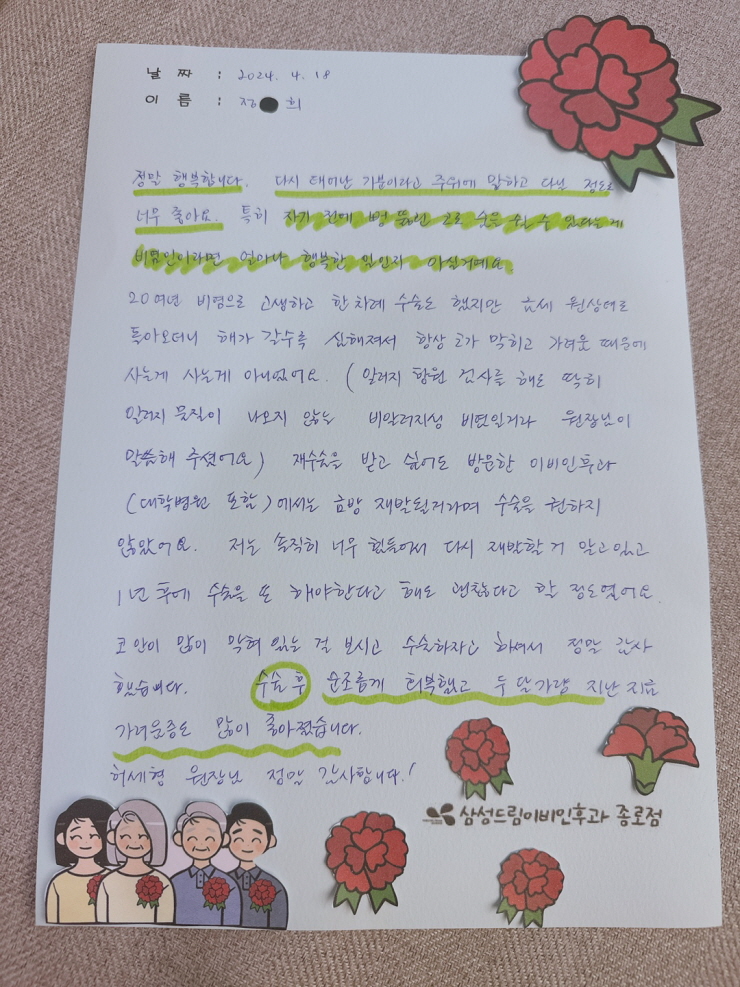 날 짜 : 2024. 4. 18
이 름 : 정 희
정말 행복합니다. 다시 태어난 기분이라고 주위에 말하고 다닐 정도로
너무 좋아요. 특히 자기 전에 뻥 뚫린 코로 숨을 쉴 수 있다는게
비염인이라면 얼마나 행복한 일인지 아실거예요.
20여년 비염으로 고생하고 한차례 수술도 했지만 금세 원상태로
돌아오더니 해가 갈수록 심해져서 항상 코가 막히고 가려운 때문에
사는게 사는게 아니었어요. (알러지 항원 검사를 해도 딱히
알러지 물질이 나오지 않는 비알러지성 비염일거라 원장님이
말씀해 주셨어요) 재수술을 받고 싶어도 방문한 이비인후과
(대학병원 포함)에서는 금방 재발될거라며 수술을 권하지
않았어요. 저는 솔직히 너무 힘들어서 다시 재발할 거 알고 있고
1년 후에 수술을 또 해야한다고 해도 괜찮다고 할 정도였어요.
코 안이 많이 막혀 있는 걸 보시고 수술하자고 하셔서 정말 감사
했습니다. 수술 후 순조롭게 회복했고 두 달가량 지난 지금
가려움증도 많이 좋아졌습니다.
허세형 원장님 정말 감사합니다!
삼성드림이비인후과 종로점